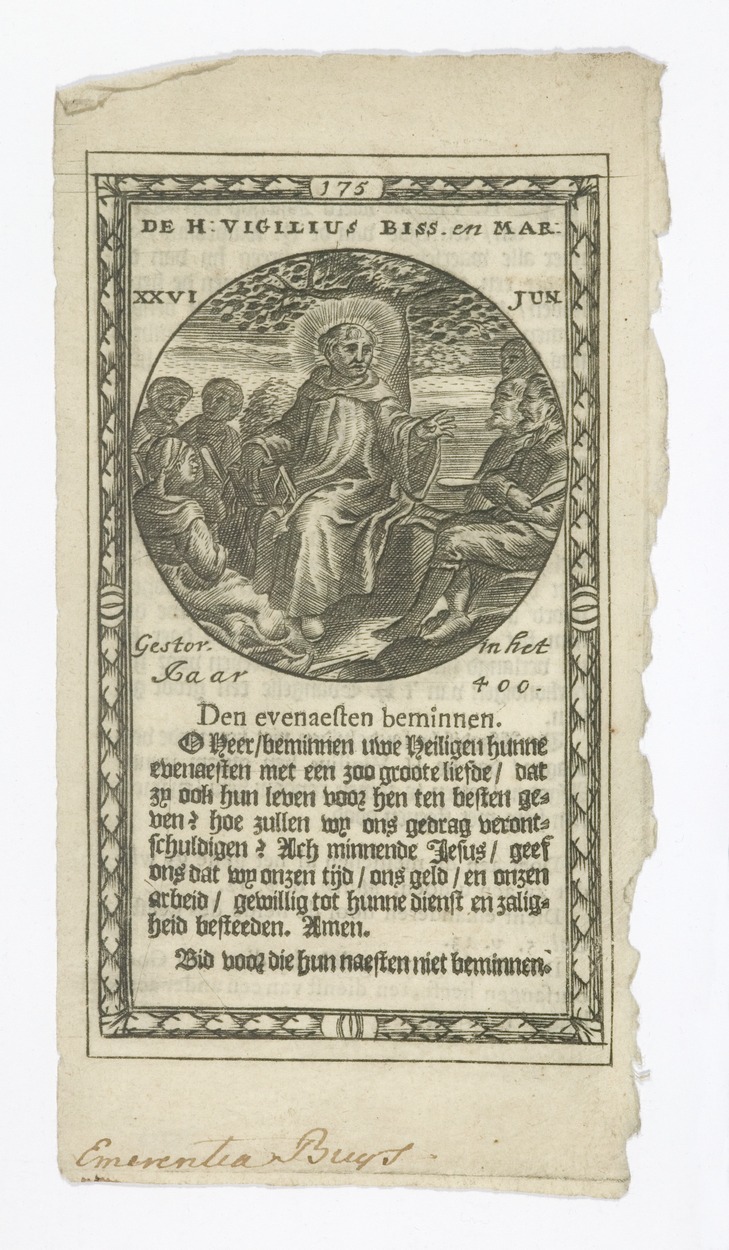 175
DE H: VIGILIUS BISS. en MAR:
XXVI JUN.
Gestor. in het
Jaar 400.
Den evenaesten beminnen.
O Heer/beminnen uwe Heiligen hunne
evenaesten met een zoo groote liefde/ dat
zy ook hun leven voor hen ten besten ge-
ven? hoe zullen wy ons gedrag veront-
schuldigen? Ach minnende Jesus/ geef
ons dat wy onzen tijd/ons geld/en onzen
arbeid/ gewillig tot hunne dienst en zalig-
heid besteeden. Amen.
Bid voor die hun naesten niet beminnen.
Emerentia Buys